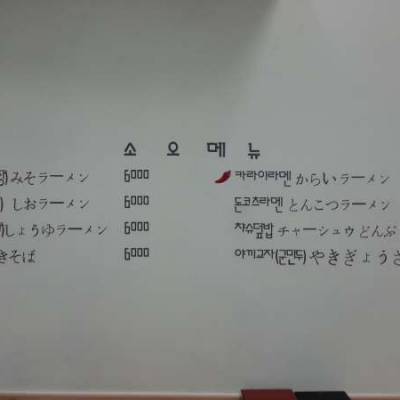 소 오 메 뉴
みそラーメン 6000 카라이라멘 からいラーメン
しおラーメン 6000 돈코츠라멘 とんこつラーメン
しょうゆラーメン 6000 차슈덮밥 チャーシュウどんぶ
きそば 6000 야끼교자(군만두) やきぎょうざ